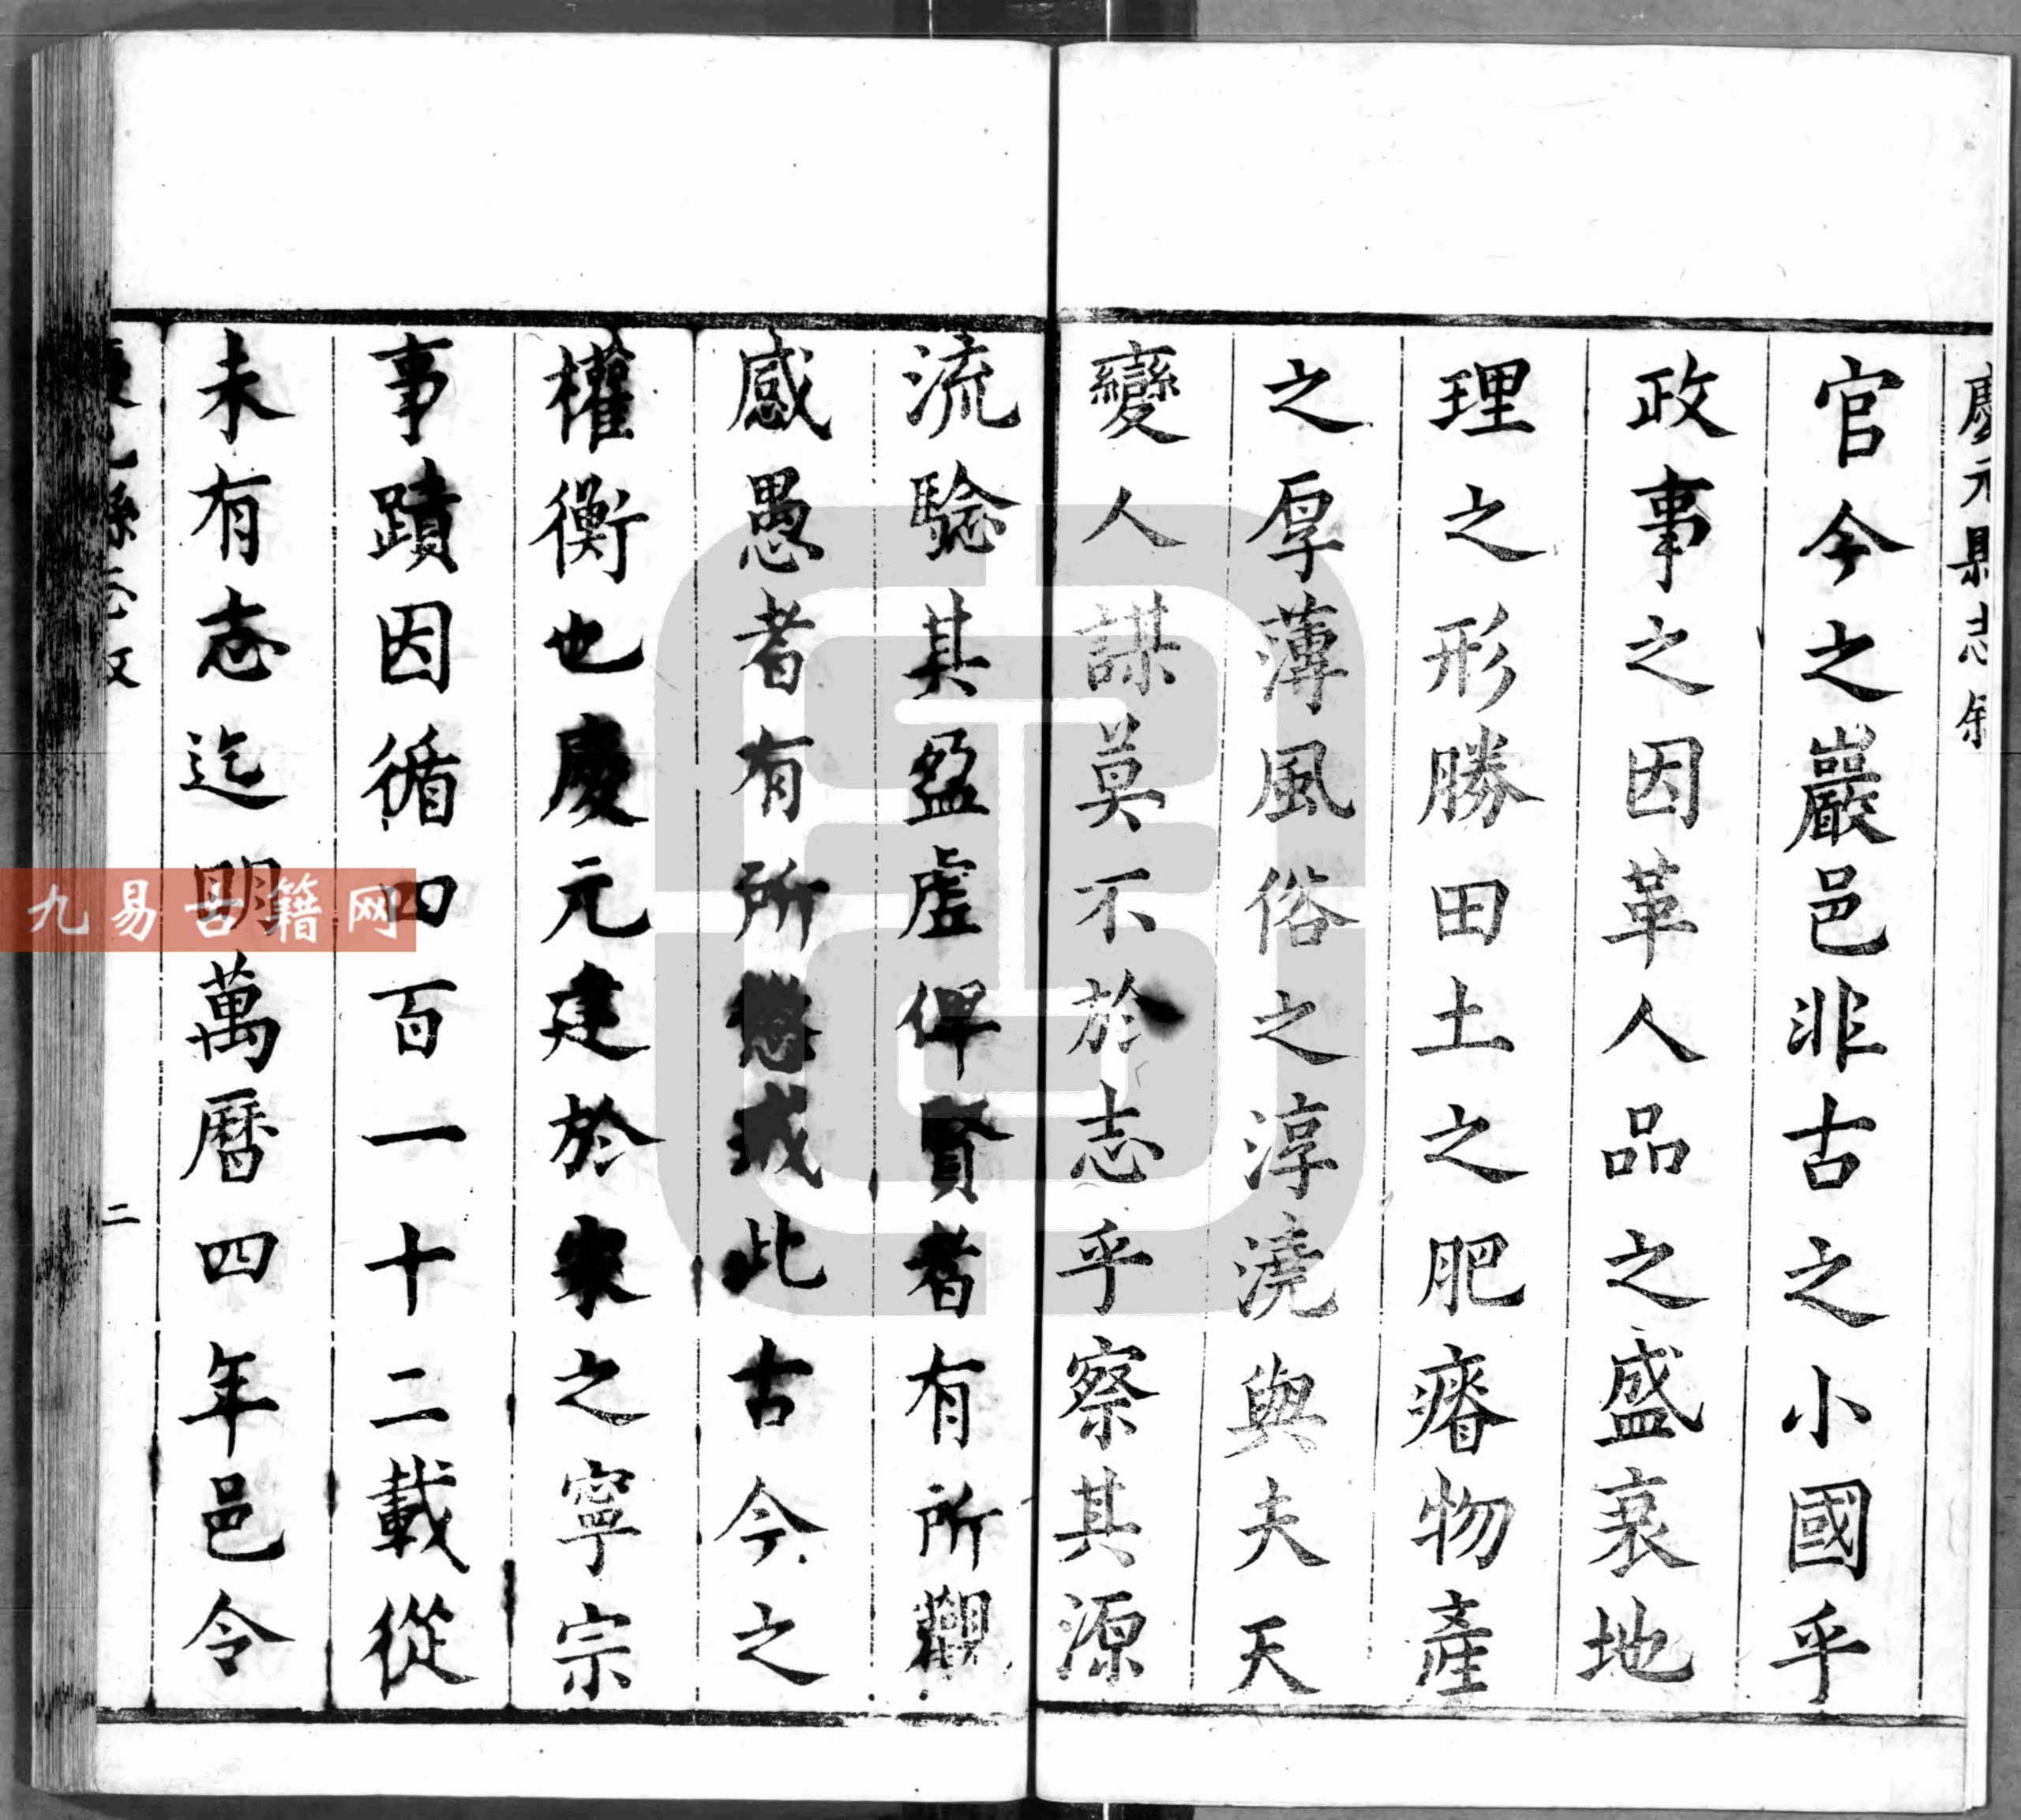 慶元縣志敘
官今之巖邑非古之小國乎
政事之因革人品之盛衰地
理之形勝田土之肥瘠物產
之厚薄風俗之淳澆與夫天
變人謀莫不於志乎察其源
流驗其盈虛俾賢者有所觀
感愚者有所懲戒此古今之
權衡也慶元建於宋之寧宗
事蹟因循四百一十二載從
未有志迄明萬曆四年邑令
二
九易古籍网